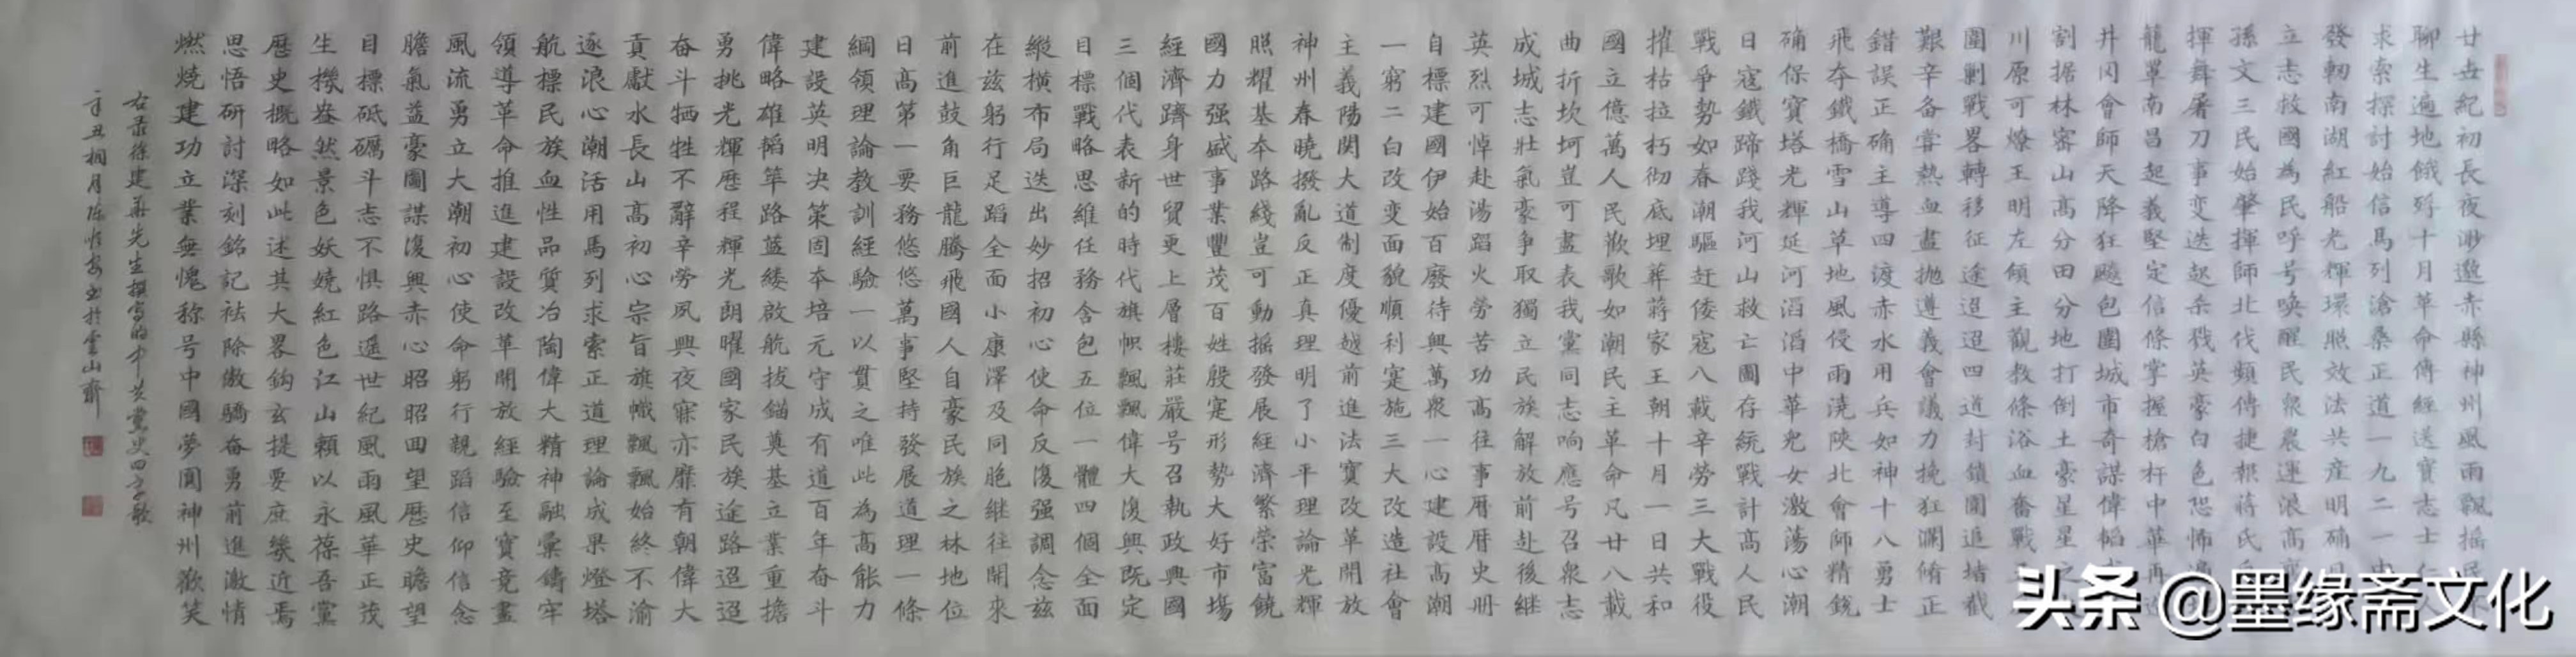 廿世紀初長夜渺邈赤縣神州風雨飄搖民不
聊生遍地餓殍十月革命傳經送寶志士仁人
求索探討始信馬列滄桑正道一九二一中
發軔南湖紅船光輝環照效法共産明确
立志救國為民呼号喚醒民衆農運浪高
孫文三民始肇揮師北伐頻傳捷報蔣氏
揮舞屠刀事变迭起杀戮英豪白色恐怖
籠罩南昌起義堅定信條掌握槍杆中華再
井冈會師天降狂飈包圍城市奇謀偉韜
割据林密山高分田分地打倒土豪星星之
川原可燎王明左傾主觀教條浴血奮戰
圍剿戰畧轉移征途迢迢四道封鎖圍追堵截
艱辛备嘗熱血盡抛遵義會議力挽狂瀾脩正
錯誤正确主導四渡赤水用兵如神十八勇士
飛夺鐵橋雪山草地風侵雨澆陝北會師精銳
确保寶塔光輝延河滔滔中華兒女激蕩心潮
日寇鐵蹄踐我河山救亡圖存統戰計高人民
戰爭勢如春潮驅赶倭寇八載辛勞三大戰役
摧枯拉朽彻底埋葬蔣家王朝十月一日共和
國立億萬人民歡歌如潮民主革命凡廿八載
曲折坎坷豈可盡表我黨同志响應号召衆志
成城志壯氣豪争取獨立民族解放前赴後继
英烈可悼赴湯蹈火勞苦功高往事曆曆史册
自標建國伊始百廢待興萬衆一心建設高潮
一窮二白改变面貌順利寔施三大改造社會
主義陽関大道制度優越前進法寶改革開放
神州春曉撥亂反正真理明了小平理論光輝
照耀基本路綫豈可動摇發展經濟繁荣富饒
國力强盛事業豐茂百姓殷寔形勢大好市場
經濟躋身世貿更上層樓莊嚴号召執政興國
三個代表新的時代旗帜飄飄偉大復興既定
目標戰略思維任務含包五位一體四個全面
縱橫布局迭出妙招初心使命反復强調念兹
在兹躬行足蹈全面小康澤及同胞继往開來
前進鼓角巨龍騰飛國人自豪民族之林地位
日高第一要務悠悠萬事堅持發展道理一條
綱領理論教訓經驗一以貫之唯此為高能力
建設英明决策固本培元守成有道百年奋斗
偉略雄韜筚路蓝縷啟航拔錨奠基立業重擔
勇挑光輝歷程輝光朗曜國家民族途路迢迢
奋斗牺牲不辭辛勞夙興夜寐亦靡有朝偉大
貢獻水長山高初心宗旨旗幟飄飄始終不渝
逐浪心潮活用馬列求索正道理論成果燈塔
航標民族血性品質冶陶偉大精神融彙鑄牢
領導革命推進建設改革開放經驗至寶竟畫
風流勇立大潮初心使命躬行親蹈信仰信念
膽氣益豪圖謀復興赤心昭昭回望歷史瞻望
目標砥礪斗志不惧路遥世紀風雨風華正茂
生機盎然景色妖嬈紅色江山賴以永葆吾黨
歷史概略如此述其大畧鈎玄提要庶幾近焉
思悟研討深刻銘記袪除傲驕奋勇前進激情
燃燒建功立業無愧称号中國夢圓神州歡笑
右录徐建華先生撰寫的中共黨史四字歌
辛丑桐月陈恒安書於雲山齋
头条 @墨缘斋文化